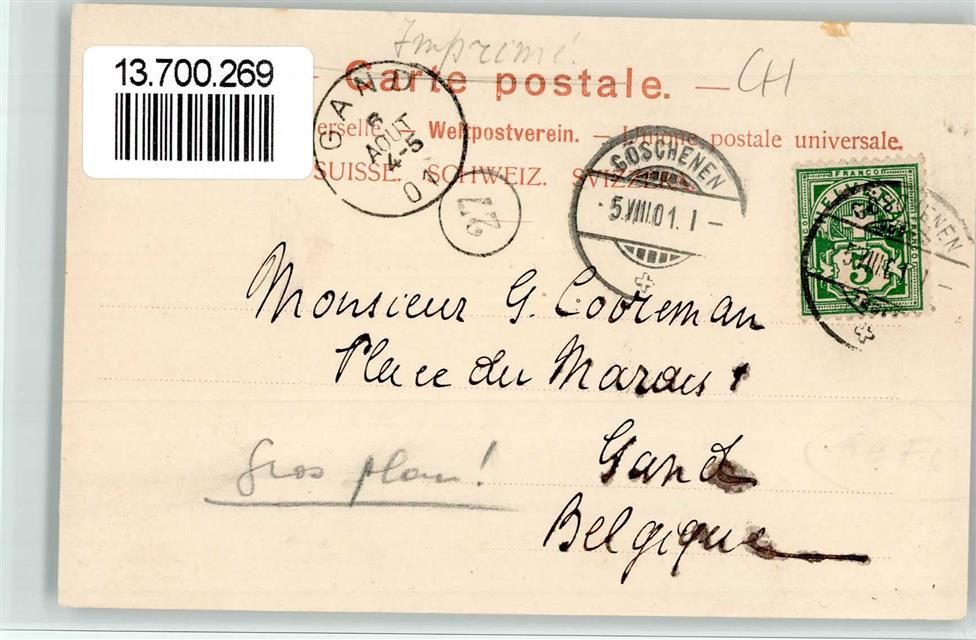 Imprimé
13.700.269
Carte postale. — CH
erselle. – Weltpostverein. – Unione postale universale.
SUISSE. SCHWEIZ. SVIZZERA.
GAND
6
AOUT
4-5
01
27
GÖSCHENEN
5.VIII.01. I –
FRANCO
HELVETIA
5
5.VIII.01
Monsieur G. Cooreman
Place du Marais 1
Gros plan!
Gand
Belgique